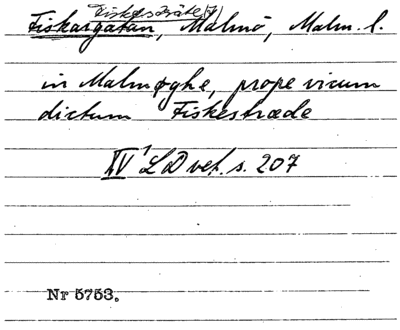 Fiskesträte (?)
Fiskaregatan, Malmö, Malm. l.
in Malmøghe, prope vicum
dictum Fiskestræde
IV¹ LD vet. s. 207
Nr 5753.